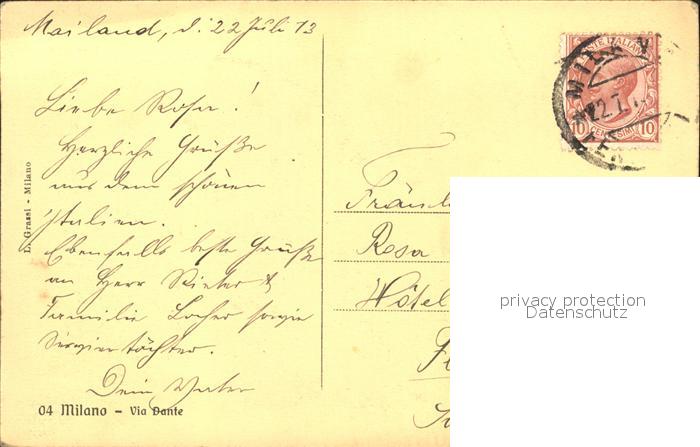 Mailand, d. 22 Juli 13
Liebe Rosa!
Herzliche Grüße
aus dem schönen
Italien.
Ebenfalls beste Grüße
an Herr Rieter &
Familie Locher sowie
Serviertöchter.
Dein Vater
04 Milano – Via Dante
L. Grassi - Milano
POSTE ITALIANE
10 CENTESIMI 10
MILANO
22.7.1
Fräul
Rosa
Hôtel
privacy protection
Datenschutz